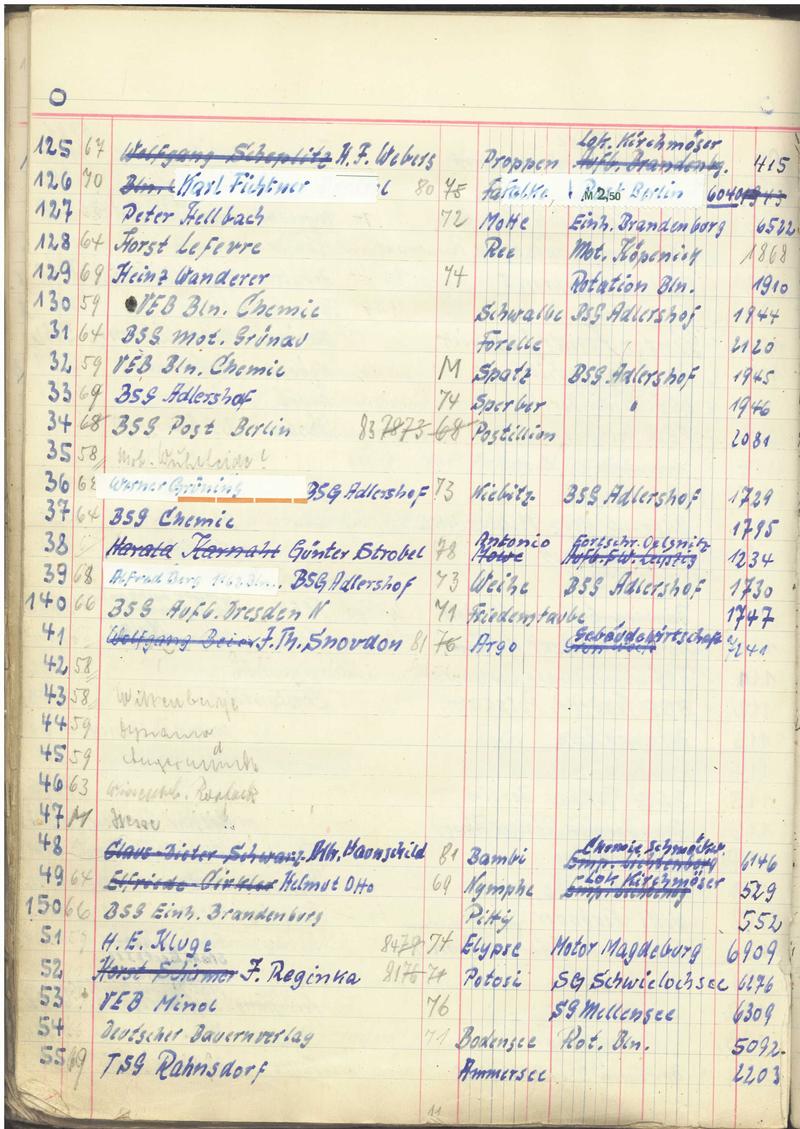 O
Lok. Kirchmöser
125 67 Wolfgang Scheplitz H. F. Webers Proppen Aufb. Brandenbg. 415
126 70 Karl Fichtner 80 75 M 2,50 Berlin 6040
127 Peter Hellbach 72 Motte Einh. Brandenburg 6522
128 64 Horst Lefevre Ree Mot. Köpenick 1868
129 69 Heinz Wanderer 74 Rotation Bln. 1910
130 59 VEB Bln. Chemie Schwalbe BSG Adlershof 1944
31 64 BSG Mot. Grünau Forelle " 2120
32 59 VEB Bln. Chemie M Spatz BSG Adlershof 1945
33 69 BSG Adlershof 74 Sperber " 1946
34 68 BSG Post Berlin 83 7873 68 Postillion 2081
35 58 Mot. Wuhlheide!
36 62 Werner Grüning BSG Adlershof 73 Kiebitz BSG Adlershof 1729
37 64 BSG Chemie 1795
Antonio Fortschr. Oelsnitz
38 Harald Harnaht Günter Strobel 78 Möwe Aufb. S.W. Leipzig 1234
39 68 Alfred Berg BSG Adlershof 73 Weihe BSG Adlershof 1730
140 66 BSG Aufb. Dresden N 71 Friedenstaube 1747
Gebäudewirtschaft
41 Wolfgang Beier F. Th. Snovdon 81 76 Argo 1241
42 58
43 58 Wittenberge
44 59 Dynamo
45 59 Angermünde
46 63
47 M
Chemie Schmöckw.
48 Claus-Dieter Schwarz Alb. Haunschild 81 Bambi Emp. Lichtenberg 6146
Lok Kirchmöser
49 64 Elfriede Zirkler Helmut Otto 69 Nymphe 529
150 66 BSG Einh. Brandenburg Pittj 552
51 H. E. Kluge 8478 74 Elypse Motor Magdeburg 6909
52 Horst Schirmer F. Reginka 8176 71 Potosi SG Schwielochsee 6276
53 VEB Minol 76 SG Mellensee 6309
54 Deutscher Bauernverlag 71 Bodensee Rot. Bln. 5092
55 69 TSG Rahnsdorf Ammersee 2203
11